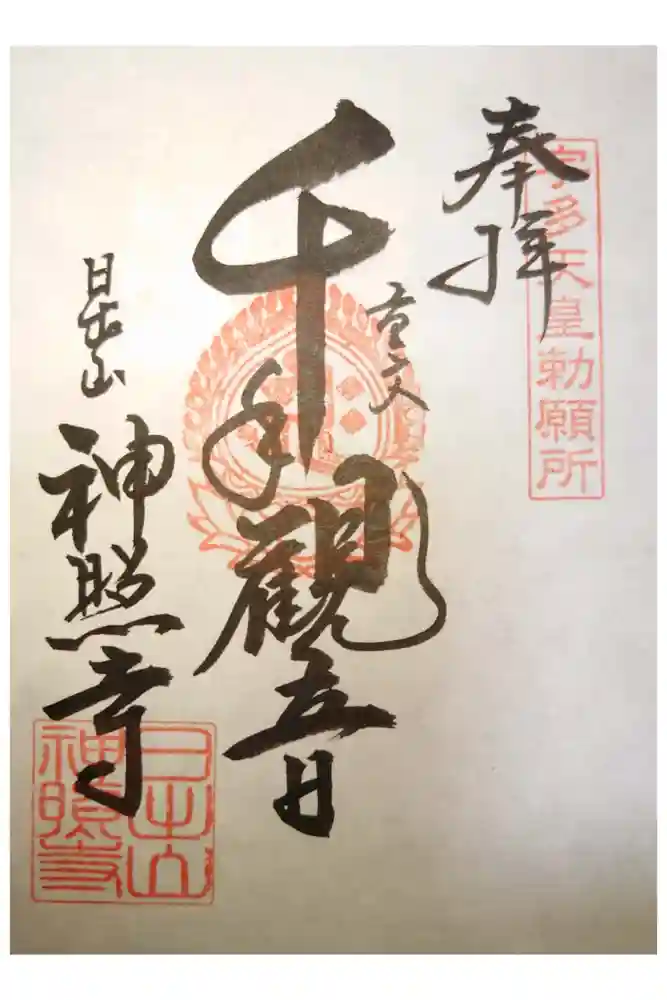 宇多天皇勅願所
奉拝
重文
千手觀音
日出山
神照寺
日出山
神照寺